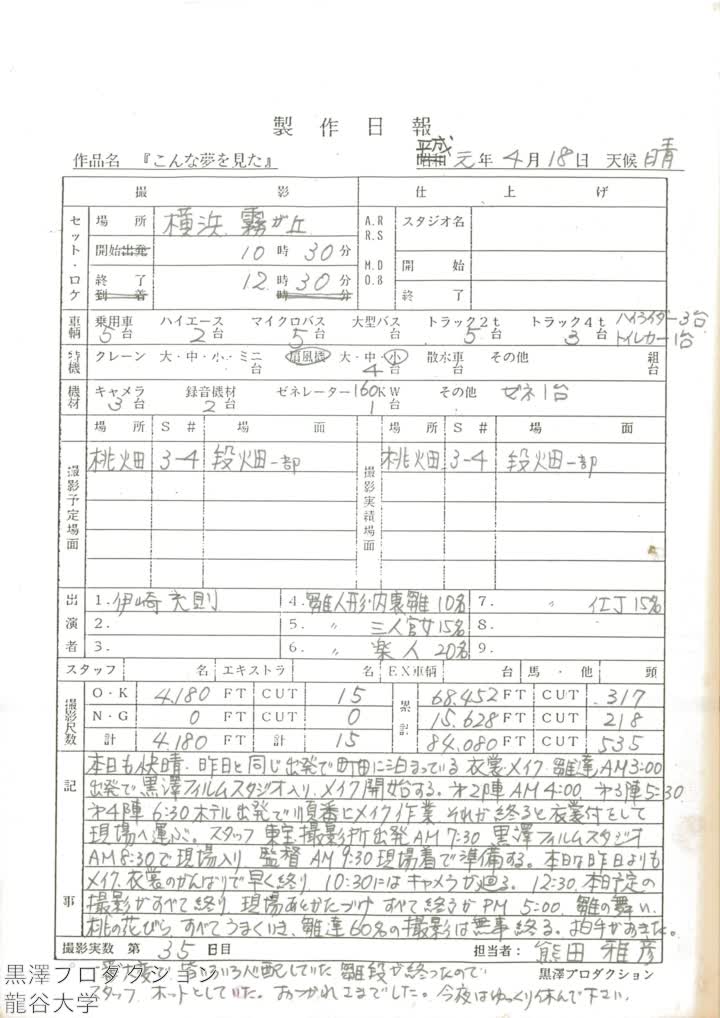 製作日報
作品名 『こんな夢を見た』 平成 元年 4月 18日 天候 晴
撮影 仕上げ
セット・ロケ 場所 横浜 霧が丘 A.R R.S スタジオ名
開始出発 10時30分 M.D O.B 開始
終了 到着 12時30分 時 分 終了
車輌 乗用車 5台 ハイエース 2台 マイクロバス 5台 大型バス トラック2t 5台 トラック4t 3台 ハイライダー3台
トイレカー1台
特機 クレーン 大・中・小・ミニ 台 扇風機 大・中・小 4台 散水車 台 その他 組 台
機材 キャメラ 3台 録音機材 2台 ゼネレーター160KW 1台 その他 ゼネ1台
撮影予定場面 場所 S# 場面 撮影実績場面 場所 S# 場面
桃畑 3-4 段畑一部 桃畑 3-4 段畑一部
出演者 1. 伊崎充則 4. 雛人形・内裏雛 10名 7. 〃 仕丁 15名
2. 5. 〃 三人官女 15名 8.
3. 6. 〃 楽人 20名 9.
スタッフ 名 エキストラ 名 EX車輌 台 馬・他 頭
撮影尺数 O・K 4.180 FT CUT 15 累計 68.452 FT CUT 317
N・G 0 FT CUT 0 15.628 FT CUT 218
計 4.180 FT 計 15 84.080 FT CUT 535
記事 本日も快晴. 昨日と同じ出発で町田に泊まっている 衣裳・メイク・雛達 AM3:00
出発で黒澤フィルムスタジオ入り. メイク開始する. 第2陣 AM4:00 第3陣 5:30
第4陣 6:30 ホテル出発で順番にメイク作業 それが終ると衣裳付をして
現場へ運ぶ。スタッフ 東宝撮影所出発 AM7:30 黒澤フィルムスタジオ
AM8:30で現場入り 監督 AM9:30現場着で準備する。本日は昨日よりも
メイク, 衣裳のがんばりで早く終り, 10:30にはキャメラが廻る。12:30. 本日予定の
撮影がすべて終り, 現場あとかたづけ すべて終るが PM5:00. 雛の舞い,
桃の花びら, すべてうまくいき, 雛達60名の撮影は無事終る。拍手がおきた。
撮影実数 第 35 日目 担当者: 熊田雅彦
心配していた 雛段が終ったので 黒澤プロダクション
スタッフ ホットとしていた。おつかれさまでした。今夜はゆっくり休んで下さい。
黒澤プロダクション
龍谷大学